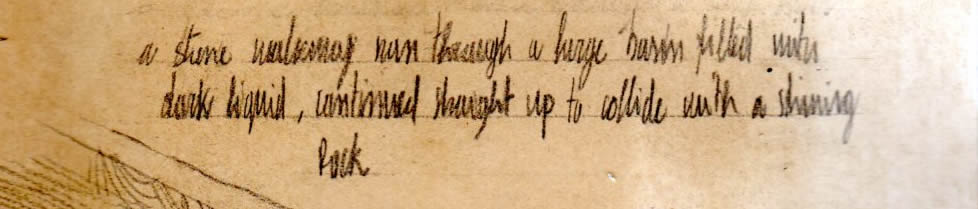 a stone walkway run through a large basin filled with
dark liquid, continued straight up to collide with a shining
rock